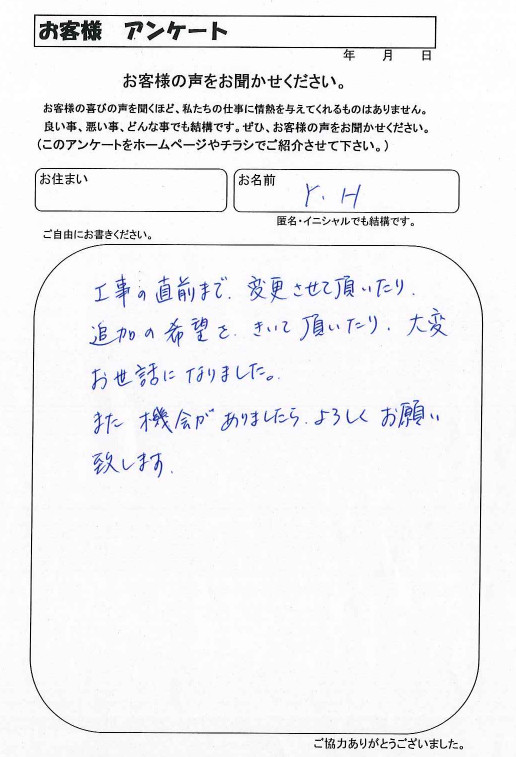 お客様 アンケート
年 月 日
お客様の声をお聞かせください。
お客様の喜びの声を聞くほど、私たちの仕事に情熱を与えてくれるものはありません。
良い事、悪い事、どんな事でも結構です。ぜひ、お客様の声をお聞かせください。
(このアンケートをホームページやチラシでご紹介させて下さい。)
お住まい
お名前
Y. H
匿名・イニシャルでも結構です。
ご自由にお書きください。
工事の直前まで、変更させて頂いたり、
追加の希望を、きいて頂いたり、大変
お世話になりました。
また機会がありましたら、よろしくお願い
致します。
ご協力ありがとうございました。